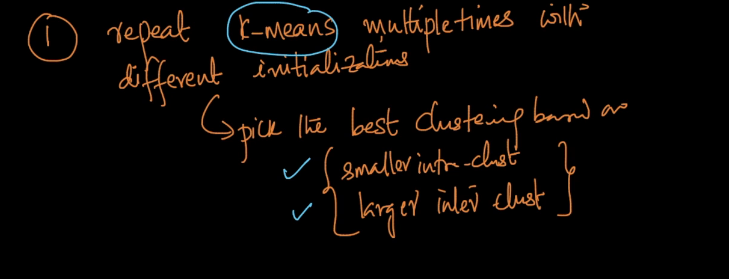 ① repeat K-means multiple times with
different initializations
pick the best clustering based on
smaller intra-clust
larger inter clust